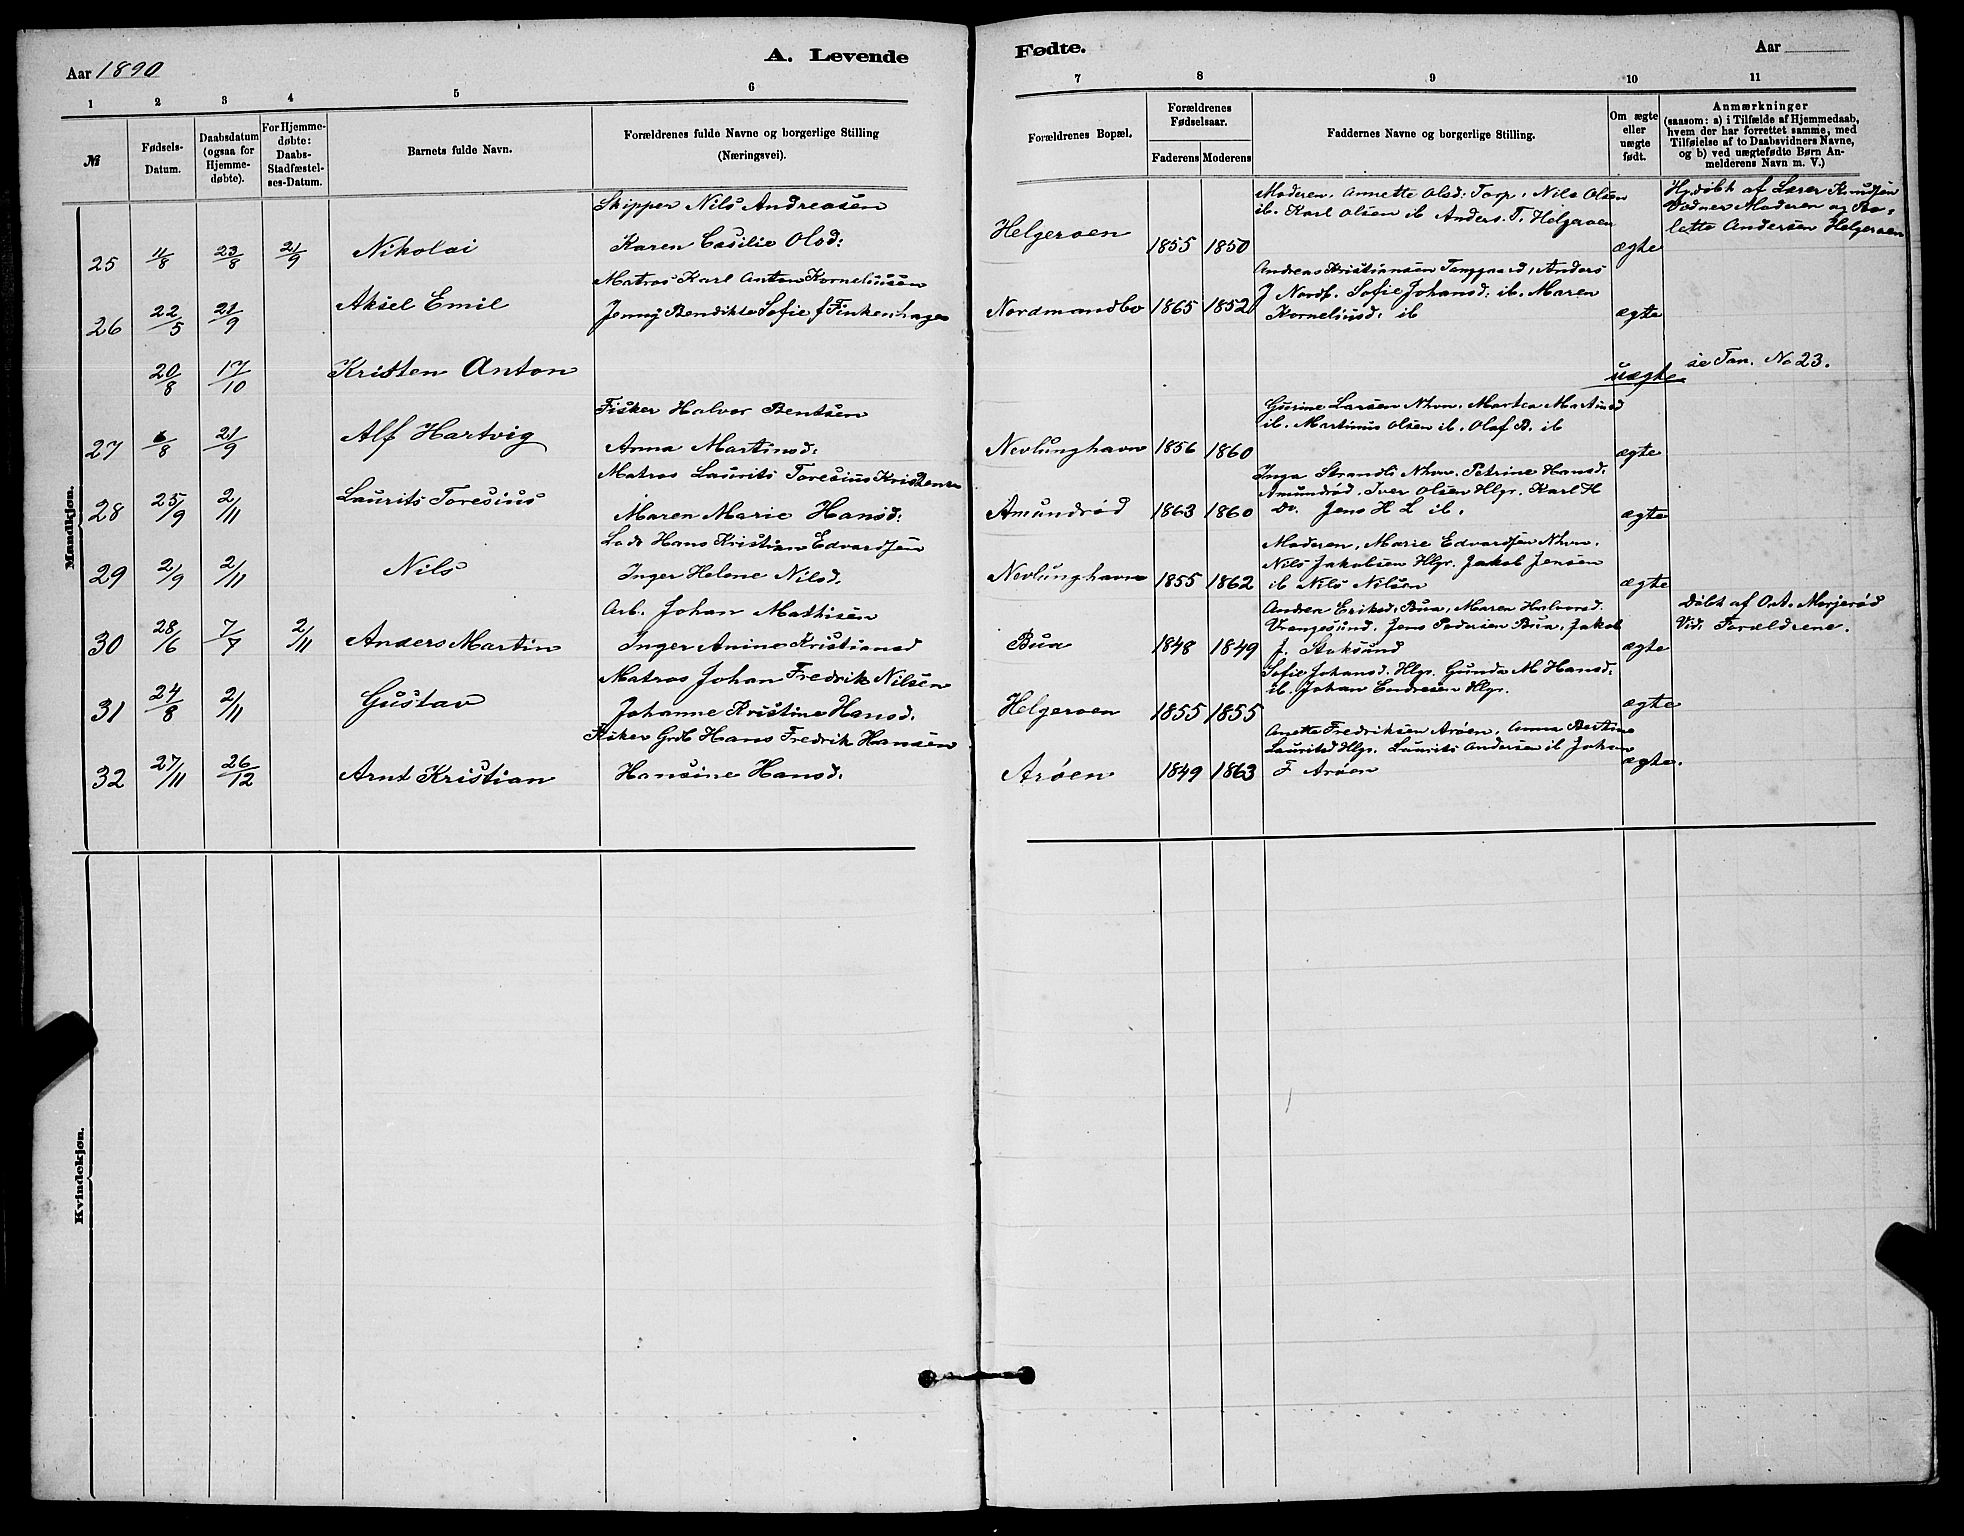 Aar 1890
A. Levende
Fødte.
Aar
1 2 3 4 5 6
7 8 9 10 11
№
Fødsels-
Datum.
Daabsdatum
(ogsaa for
Hjemme-
døbte).
For Hjemme-
døbte:
Daabs-
Stadfæstel-
ses-Datum.
Barnets fulde Navn.
Forældrenes fulde Navne og borgerlige Stilling
(Næringsvei).
Forældrenes Bopæl.
Forældrenes
Fødselsaar.
Faderens Moderens
Faddernes Navne og borgerlige Stilling.
Om ægte
eller
uægte
født.
Anmærkninger
(saasom: a) i Tilfælde af Hjemmedaab,
hvem der har forrettet samme, med
Tilføielse af to Daabsvidners Navne,
og b) ved uægtefødte Børn An-
melderens Navn m. V.)
Mandkjøn.
25 11/8 23/8 21/9 Nikolai
Skipper Nils Andreasen
Karen Cesilie Olsd:
Helgeroen 1855 1850
Moderen, Annette Olsd: Torp, Nils Olsen
ib. Karl Olsen ib Anders. T. Helgeroen
ægte
Hj.døbt af Lærer Knudsen
Vidner Moderen og
lette Andersen Helgeroen
26 22/5 21/9 Aksel Emil
Matros Karl Anton Korneliussen
Jenny Bendikte Sofie f Finkenhagen
Nordmandbo 1865 1852
Andreas Kristiansen Tanggaard, Anders
J Nordb. Sofie Johansd: ib. Maren
Korneliusd: ib
ægte
20/8 17/10 Kristen Anton
uægte
se Jan. No 23.
27 6/8 21/9 Alf Hartvig
Fisker Halvor Bentsen
Anna Martinsd:
Nevlunghavn 1856 1860
Gurine Larsen Nhvn. Martea Martinsd
ib. Martinus Olsen ib. Olaf B. ib
ægte
28 25/9 2/11 Laurits Toresius
Matros Laurits Toresius Kristensen
Maren Marie Hansd:
Amundrød 1863 1860
Inga Strandli Nhvn. Petrine Hansd:
Amundrød. Iver Olsen Hlgr. Karl H
Do. Jens H L ib.
ægte
29 2/9 2/11 Nils
Lods Hans Kristian Edvardsen
Inger Helene Nilsd.
Nevlunghavn 1855 1862
Moderen, Marie Edvardsen Nhvn.
Nils Jakobsen Hlgr. Jakob Jensen
ib Nils Nilsen
ægte
30 28/6 7/7 2/11 Anders Martin
Arb. Johan Mathisen
Inger Anine Kristiansd
Bua 1848 1849
Andrea Eriksd. Bua, Maren Halvorsd.
Vrangesund. Jens Pedersen Bua, Jakob
J. Stoksund
ægte
Døbt af Ant. Morjerød
Vid. Forældrene.
31 24/8 2/11 Gustav
Matros Johan Fredrik Nilsen
Johanne Kristine Hansd.
Helgeroen 1855 1855
Sofie Johansd. Hlgr. Gunda M Hansd:
ib. Johan Endresen Hlgr.
ægte
32 27/11 26/12 Arnt Kristian
Fisker Grdb Hans Fredrik Hansen
Hansine Hansd.
Arøen 1849 1863
Anette Fredriksen Arøen, Anna Bertine
Lauritsd Hlgr. Laurits Andersen ib Johan
F Arøen
ægte.
Kvindekjøn.